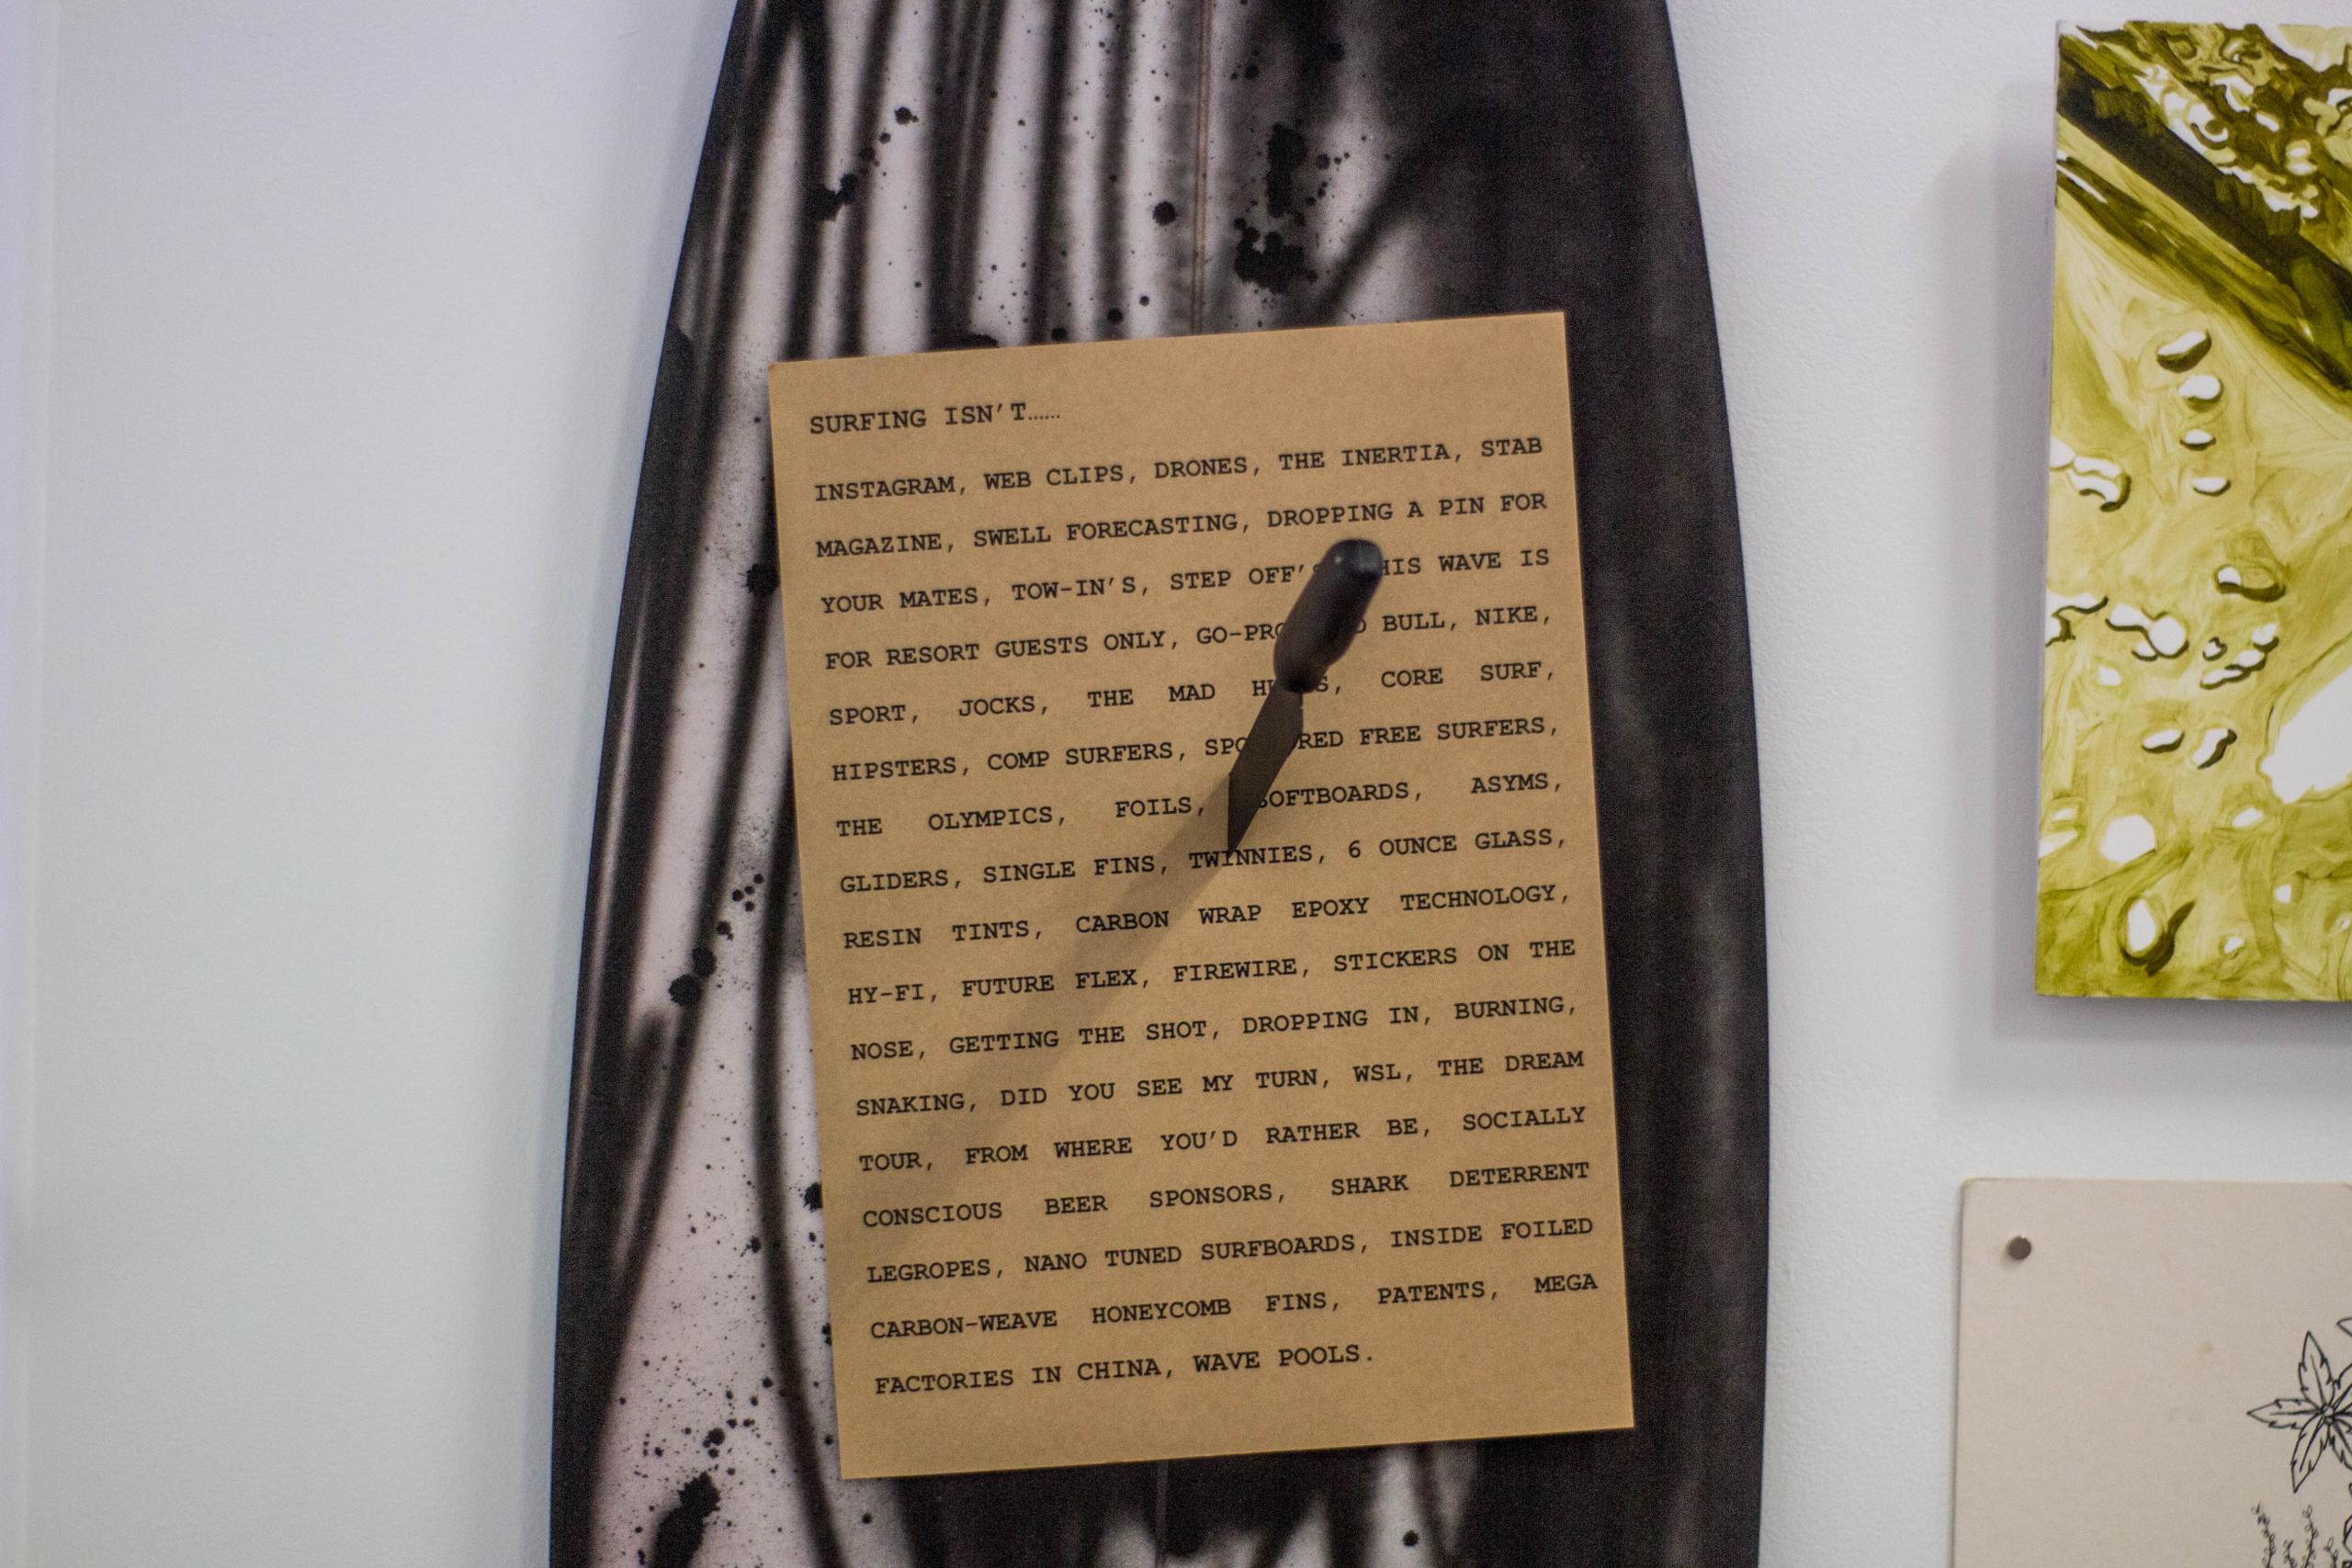 SURFING ISN'T......
INSTAGRAM, WEB CLIPS, DRONES, THE INERTIA, STAB
MAGAZINE, SWELL FORECASTING, DROPPING A PIN FOR
YOUR MATES, TOW-IN'S, STEP OFF' WAVE IS
FOR RESORT GUESTS ONLY, BULL, NIKE,
SPORT, JOCKS, THE MAD CORE SURF,
HIPSTERS, COMP SURFERS, FREE SURFERS,
THE OLYMPICS, FOILS, SOFTBOARDS, ASYMS,
GLIDERS, SINGLE FINS, TWINNIES, 6 OUNCE GLASS,
RESIN TINTS, CARBON WRAP EPOXY TECHNOLOGY,
HY-FI, FUTURE FLEX, FIREWIRE, STICKERS ON THE
NOSE, GETTING THE SHOT, DROPPING IN, BURNING,
SNAKING, DID YOU SEE MY TURN, WSL, THE DREAM
TOUR, FROM WHERE YOU'D RATHER BE, SOCIALLY
CONSCIOUS BEER SPONSORS, SHARK DETERRENT
LEGROPES, NANO TUNED SURFBOARDS, INSIDE FOILED
CARBON-WEAVE HONEYCOMB FINS, PATENTS, MEGA
FACTORIES IN CHINA, WAVE POOLS.